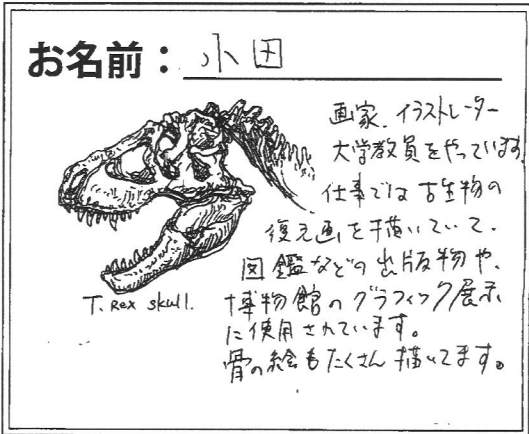 お名前：小田
画家、イラストレーター
大学教員をやっています。
仕事では古生物の
復元画を描いていて、
図鑑などの出版物や、
博物館のグラフィック展示
に使用されています。
骨の絵もたくさん描いてます。
T. Rex skull.